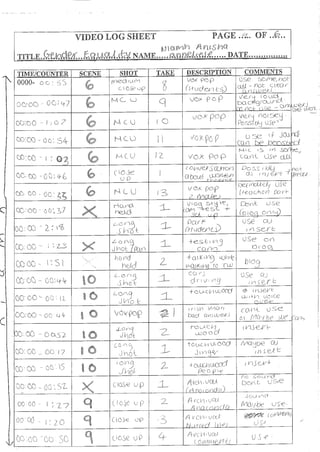 VIDEO LOG SHEET PAGE OF
Niamh Anisha
TITLE Gender Equality NAME DATE
TIME/COUNTER SCENE SHOT TAKE DESCRIPTION COMMENTS
0000- 00:55 6 medium close up 8 vox pop (students) use some, not all - not clear answers
00:00 - 00:47 6 MCU 9 vox pop very loud background
00:00 - 1:07 6 MCU 10 vox pop very noisey Possibly use
00:00 - 00:54 6 MCU 11 vox pop use if sound can be boosted
00:00 - 1:02 6 MCU 12 vox pop Mic is in some, cant use all
00:00 - 00:46 6 close up 1 conversation about women Possibly as insert
6 MCU 13 vox pop 2 males definately use
00:00 - 00:37 X hand held 1 vlog style, set up Dont use (blog only)
00:00 - 2:18 Long shot 1 Park (students) use as insert
00:00 - 1:23 X Long shot/pan 1 testing cans use on blog
00:00 - 1:51 hand held 2 talking while walking blog
00:00 - 00:44 10 Long shot 1 cars driving use as insert
00:00 - 00:11 10 Long shot 1 touchwood insert with voice
00:00 - 00:44 10 voxpop 1 bad answers cant use
00:00 - 0052 10 Long shot 2 touch wood insert
00:00 - 00:17 10 Long shot 1 touchwood singer Maybe as insert
00:00 - 00:15 10 Long shot 1 touchwood people insert
00:00 - 00:52 X close up 1 Archival no sound Dont use
00:00 - 1:27 9 close up 2 Archival Anaconda
00:00 - 1:20 9 close up 3 Archival Blurred lines
00:00 : 00 50 9 close up 4 Archival (comments) use